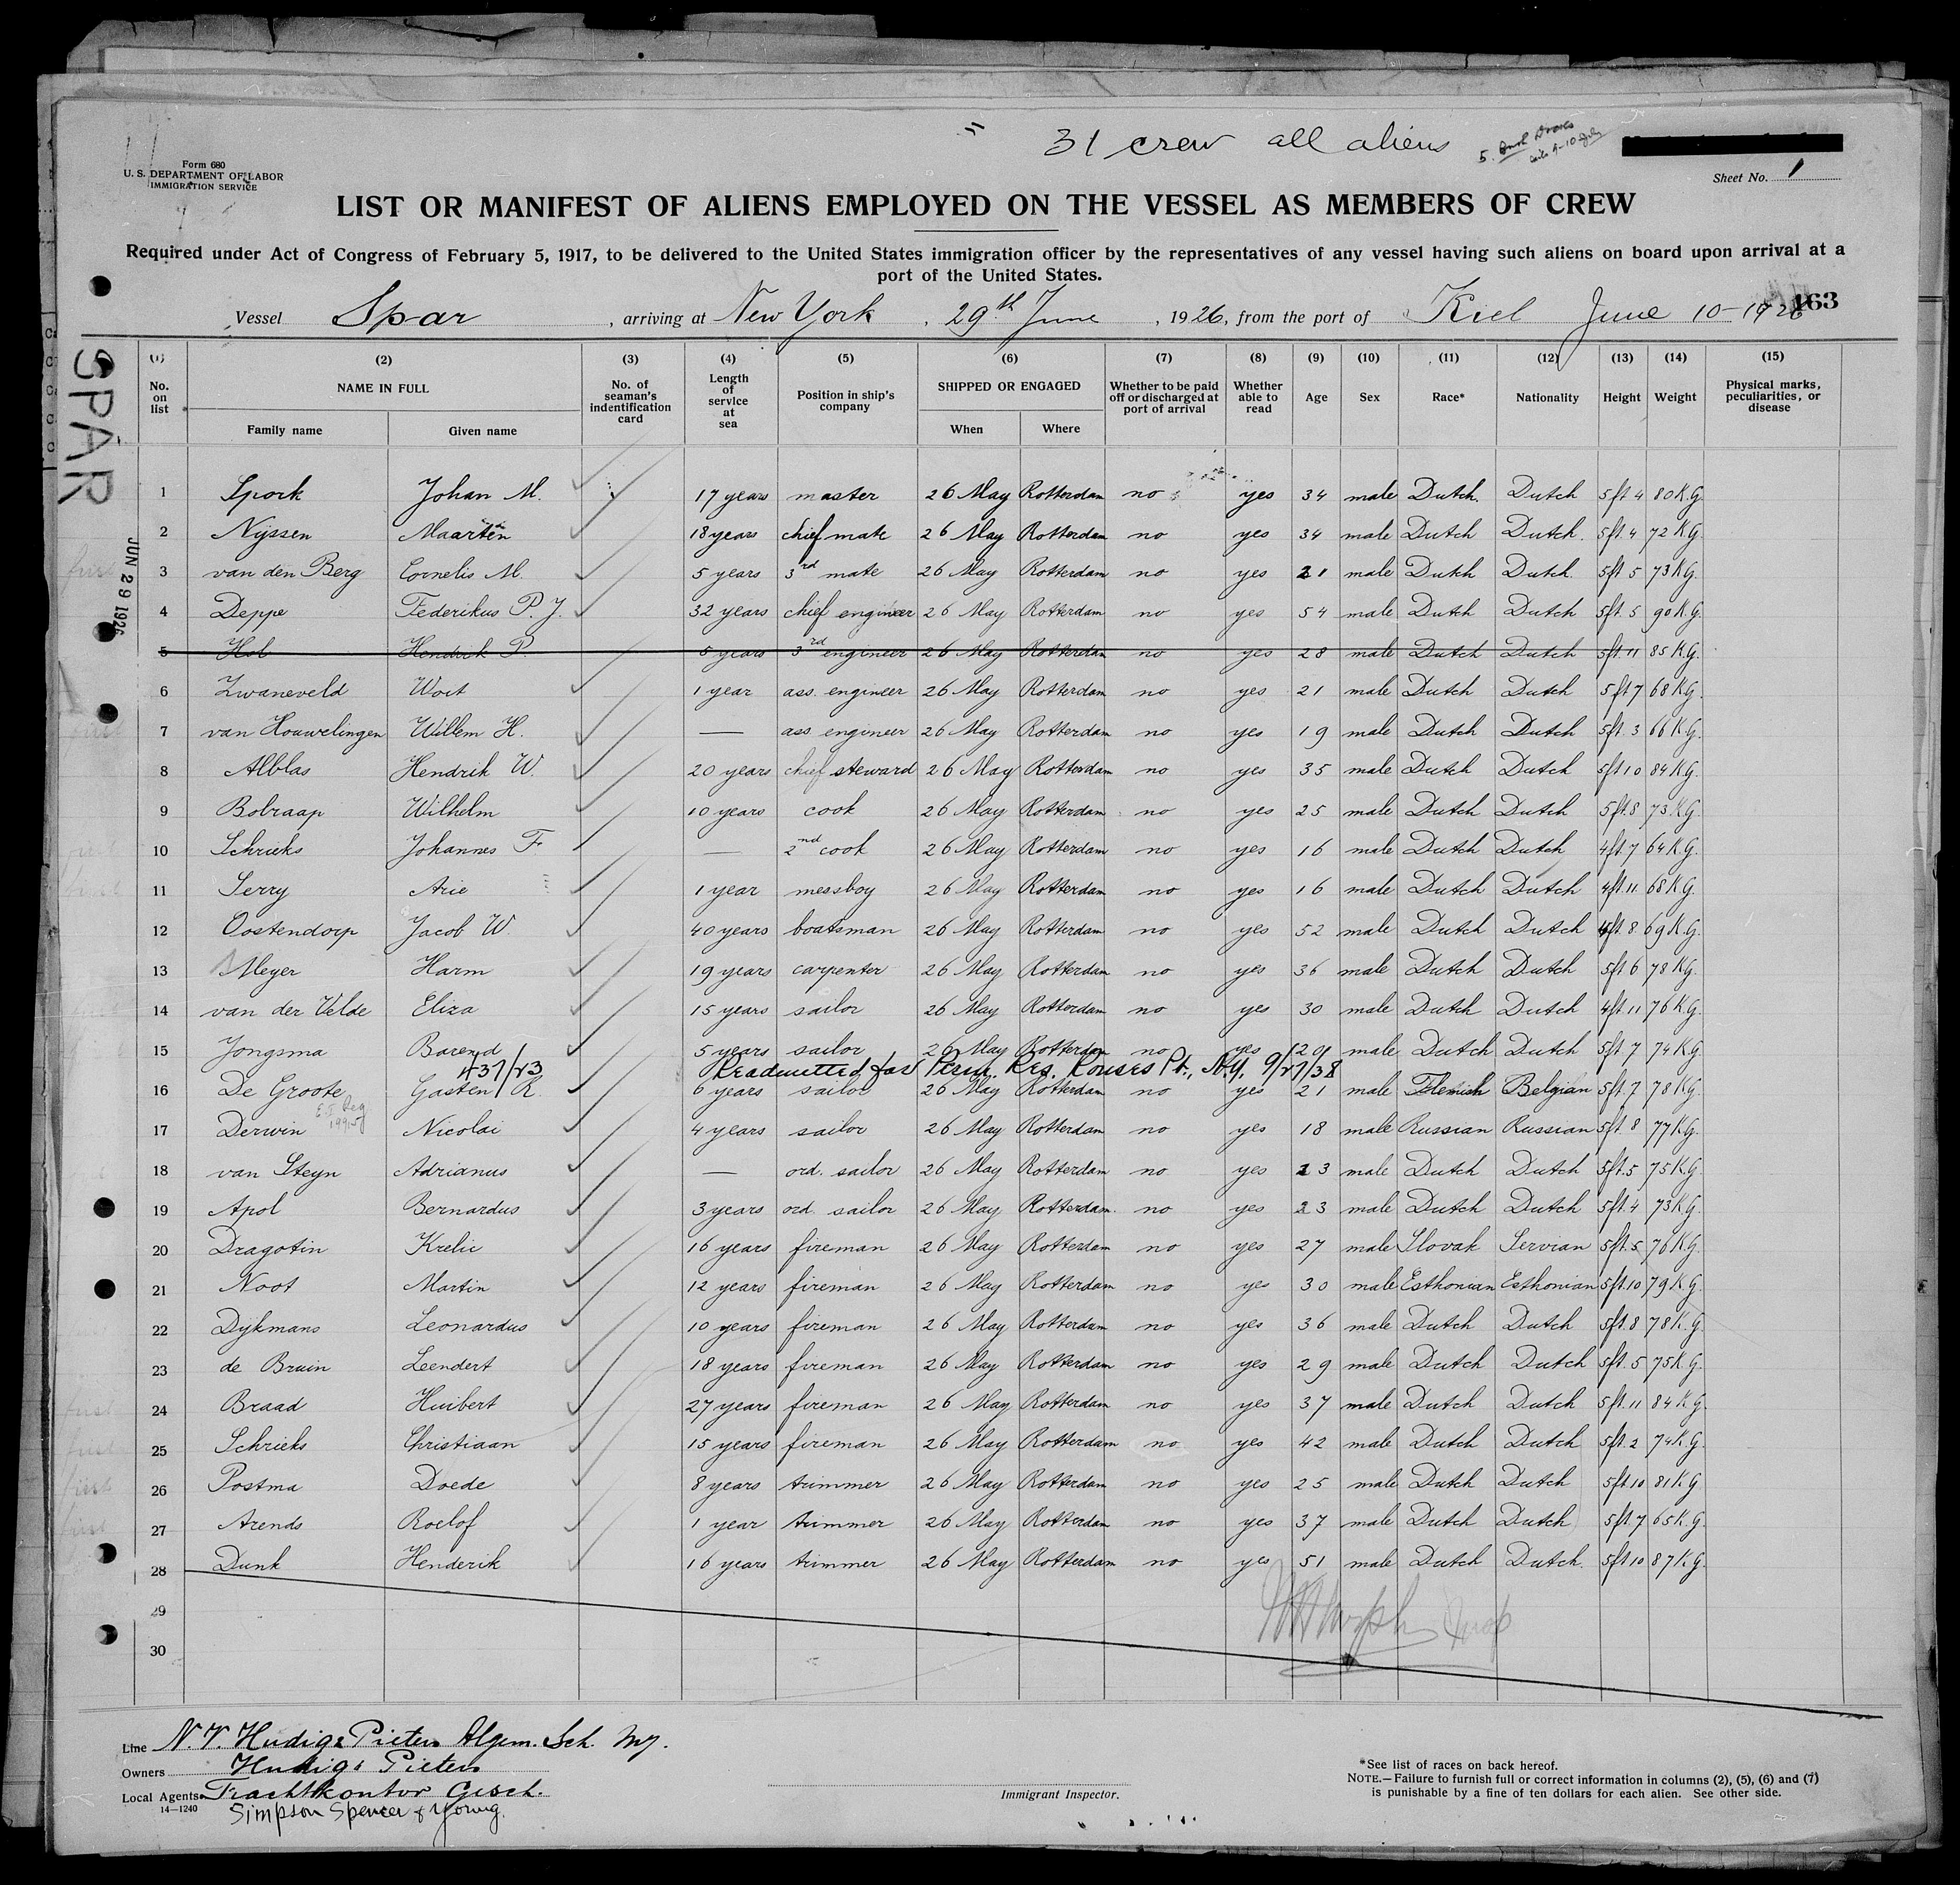 31 crew all aliens
Form 680
U. S. DEPARTMENT OF LABOR
IMMIGRATION SERVICE
Sheet No. 1
LIST OR MANIFEST OF ALIENS EMPLOYED ON THE VESSEL AS MEMBERS OF CREW
Required under Act of Congress of February 5, 1917, to be delivered to the United States immigration officer by the representatives of any vessel having such aliens on board upon arrival at a
port of the United States.
Vessel Spar, arriving at New York, 29th June, 1926, from the port of Kiel June 10-1926
463
SPAR
JUN 29 1926
(1) (2) (3) (4) (5) (6) (7) (8) (9) (10) (11) (12) (13) (14) (15)
No. on list NAME IN FULL Family name Given name No. of seaman's indentification card Length of service at sea Position in ship's company SHIPPED OR ENGAGED When Where Whether to be paid off or discharged at port of arrival Whether able to read Age Sex Race* Nationality Height Weight Physical marks, peculiarities, or disease
1 Spork Johan M. 17 years master 26 May Rotterdam no yes 34 male Dutch. Dutch 5 ft 4 80 K.G.
2 Nijssen Maarten 18 years chief mate 26 May Rotterdam no yes 34 male Dutch Dutch. 5 ft. 4 72 K.G.
3 van den Berg Cornelis M. 5 years 3rd mate 26 May Rotterdam no yes 21 male Dutch Dutch. 5 ft 5 73 K.G.
4 Deppe Federikus P. J. 32 years chief engineer 26 May Rotterdam no yes 54 male Dutch Dutch 5 ft. 5 90 K.G.
5 Hol Hendrik P. 5 years 3rd engineer 26 May Rotterdam no yes 28 male Dutch Dutch 5 ft. 11 85 K.G.
6 Zwaneveld Wout 1 year ass. engineer 26 May Rotterdam no yes 21 male Dutch Dutch 5 ft 7 68 K.G.
7 van Houwelingen Willem H. — ass engineer 26 May Rotterdam no yes 19 male Dutch Dutch 5 ft. 3 66 K.G.
8 Alblas Hendrik W. 20 years chief steward 26 May Rotterdam no yes 35 male Dutch Dutch 5 ft 10 84 K.G.
9 Bobraap Wilhelm 10 years cook 26 May Rotterdam no yes 25 male Dutch Dutch 5 ft. 8 73 K.G.
10 Schrieks Johannes F. — 2nd cook 26 May Rotterdam no yes 16 male Dutch Dutch 4 ft. 7 64 K.G.
11 Serry Arie 1 year messboy 26 May Rotterdam no yes 16 male Dutch Dutch 4 ft. 11 68 K.G.
12 Oostendorp Jacob W. 40 years boatsman 26 May Rotterdam no yes 52 male Dutch Dutch 5 ft. 8 69 K.G.
13 Meyer Harm 19 years carpenter 26 May Rotterdam no yes 36 male Dutch Dutch 5 ft 6 78 K.G.
14 van der Velde Eliza 15 years sailor 26 May Rotterdam no yes 30 male Dutch Dutch 4 ft. 11 76 K.G.
15 Jongsma Barend 5 years sailor 26 May Rotterdam no yes 20 male Dutch Dutch 5 ft 7 74 K.G.
437/23 Readmitted for Perm. Res. Rouses Pt., N.Y. 9/27/38
16 De Groote Gasten R. 6 years sailor 26 May Rotterdam no yes 21 male Flemish Belgian 5 ft. 7 78 K.G.
17 Derwin Nicolai 4 years sailor 26 May Rotterdam no yes 18 male Russian Russian 5 ft. 8 77 K.G.
18 van Steyn Adrianus — ord. sailor 26 May Rotterdam no yes 23 male Dutch Dutch 5 ft. 5 75 K.G.
19 Apol Bernardus 3 years ord. sailor 26 May Rotterdam no yes 23 male Dutch Dutch 5 ft. 4 73 K.G.
20 Dragotin Krelic 16 years fireman 26 May Rotterdam no yes 27 male Slovak Servian 5 ft. 5 76 K.G.
21 Noot Martin 12 years fireman 26 May Rotterdam no yes 30 male Esthonian Esthonian 5 ft. 10 79 K.G.
22 Dijkmans Leonardus 10 years fireman 26 May Rotterdam no yes 36 male Dutch Dutch 5 ft. 8 78 K.G.
23 de Bruin Leendert 18 years fireman 26 May Rotterdam no yes 29 male Dutch Dutch 5 ft. 5 75 K.G.
24 Braad Huibert 27 years fireman 26 May Rotterdam no yes 37 male Dutch Dutch 5 ft. 11 84 K.G.
25 Schrieks Christiaan 15 years fireman 26 May Rotterdam no yes 42 male Dutch Dutch 5 ft. 2 74 K.G.
26 Postma Doede 8 years trimmer 26 May Rotterdam no yes 25 male Dutch Dutch 5 ft 10 81 K.G.
27 Arends Roelof 1 year trimmer 26 May Rotterdam no yes 37 male Dutch Dutch 5 ft. 7 65 K.G.
28 Dunk Henderik 16 years trimmer 26 May Rotterdam no yes 51 male Dutch Dutch. 5 ft 10 87 K.G.
29
30
Line N.V. Hudig & Pieters Algem. Sch. My.
Owners Hudig & Pieters
Local Agents Frachtkontor Gesch.
14—1240 Simpson Spencer & Young.
Immigrant Inspector.
*See list of races on back hereof.
NOTE.—Failure to furnish full or correct information in columns (2), (5), (6) and (7)
is punishable by a fine of ten dollars for each alien. See other side.